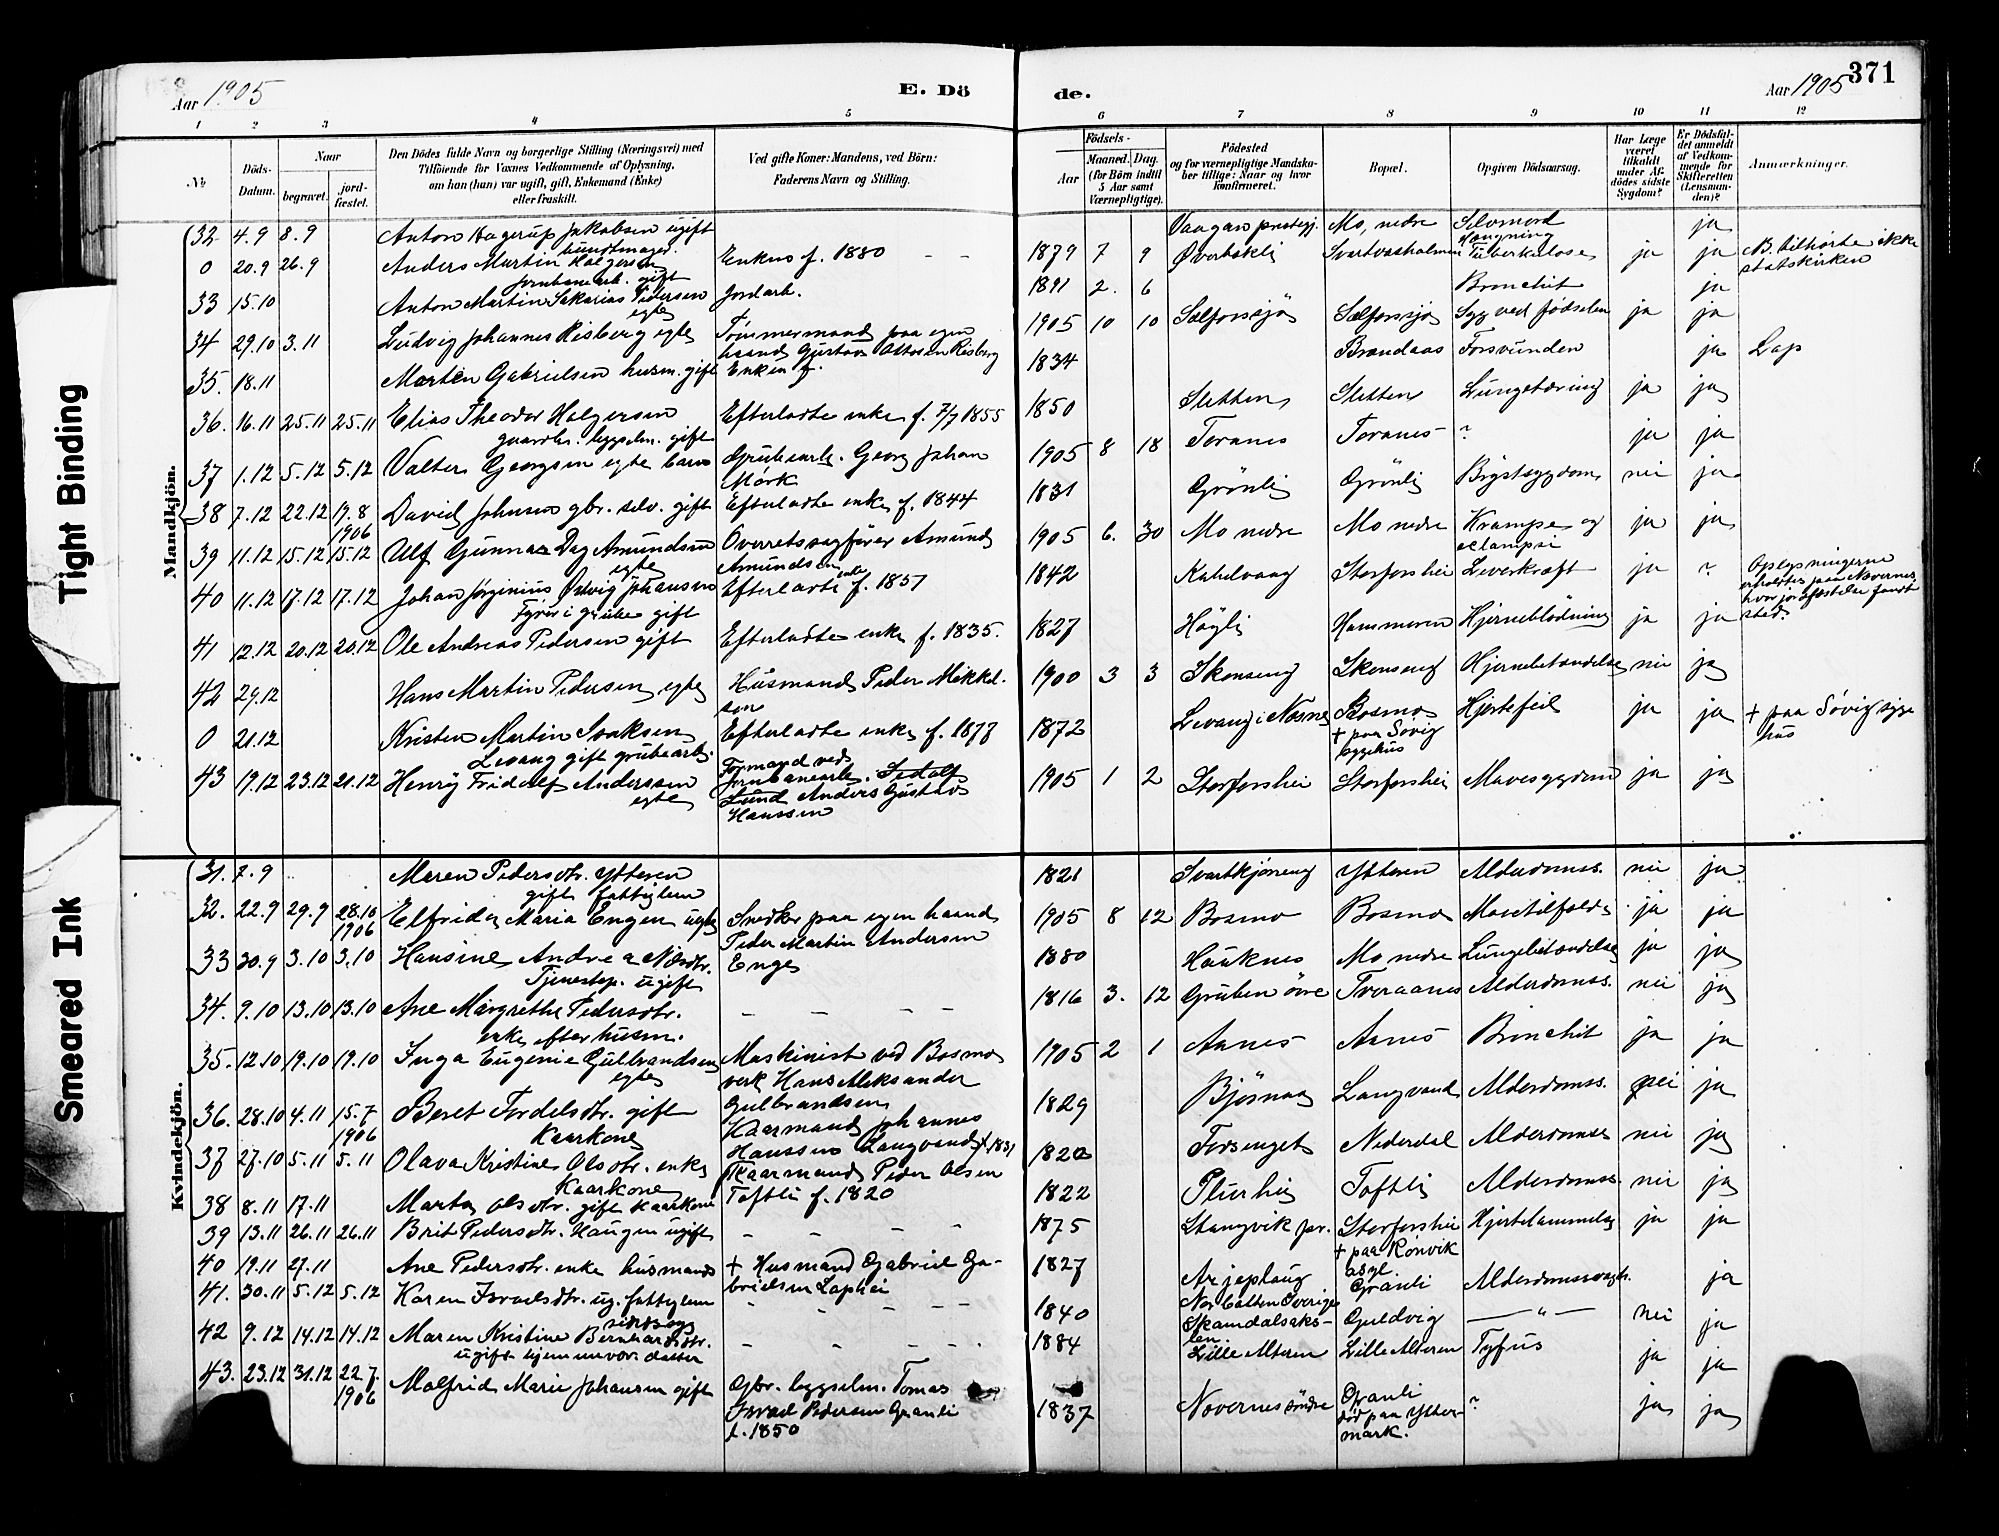 Aar 1905
E. Dö
de.
Aar 1905
371
1 2 3 4 5 6 7 8 9 10 11 12
№
Döds-Datum.
Naar
begravet.
jord-fæstet.
Den Dödes fulde Navn og borgerlige Stilling (Næringsvei) med
Tilföiende for Voxnes Vedkommende af Oplysning,
om han (hun) var ugift, gift, Enkemand (Enke)
eller fraskilt.
Ved gifte Koner: Mandens, ved Börn:
Faderens Navn og Stilling.
Födsels-
Aar
Maaned. Dag.
(for Börn indtil
5 Aar samt
Værnepligtige).
Födested
og for værnepligtige Mandska-
ber tillige: Naar og hvor
konfirmeret.
Bopæl.
Opgiven Dödsaarsag.
Har Læge
været
tilkaldt
under Af-
dödes sidste
Sygdom?
Er Dödsfal-
det anmeldt
af Vedkom-
mende for
Skifteretten
(Lensman-
den)?
Anmærkninger.
Tight Binding
Smeared Ink
Mandkjön.
32 4.9 8.9 Anton Hagerup Jakobsen ugift
buntmager
Vaagan prestegj. Mo, nedre Selvmord ja
Hængning
0 20.9 26.9 Anders Martin Holgersen Enkens f. 1880 1879 7 9 Øverbakli Svartvasholmen Tuberkulose ja ja B. tilhørte ikke
statskirken
Jernbanearb. gift
33 15.10 Anton Martin Sakarias Pedersen Jordarb. 1891 2. 6 Bronchit ja
egte
34 29.10 3.11 Ludvig Johannes Risberg egte Tömmermand paa egen 1905 10 10 Sælforssjö Sælforssjö Syg ved fødselen ja ja
haand Gustav Ottosen Risberg
35. 18.11 Morten Gabrielsen husm. gift Enken f. 1834 Brandaas Forsvunden ja Lap
36. 16.11 25.11 25.11 Elias Theodor Holgersen Efterladte enke f. 7/7 1855 1850 Sletten Sletten Lungetæring ja ja
gaardbr. gift
37 1.12 5.12 5.12 Valter Georgsen egte barn Grubearb. Georg Johan 1905 8 18 Toranes Toranes ? ja ja
Mörk
38 7.12 22.12 19.8 David Johnsen gbr. selv. gift Efterladte enke f. 1844 1831 Grönli Grönli Brystsygdom nei ja
1906
39 11.12 15.12 15.12 Ulf Gunnar Dag Amundsen Overretssagförer Amund 1905 6. 30 Mo nedre Mo nedre Krampe og ja ja
egte Amundsen eclampsi
40 11.12 17.12 17.12 Johan Jørginius Johansen Efterladte enke f. 1857 1842 Kabelvaag Storforshei Leverkræft ja ? Oplysningerne
erholdtes paa Nævernes,
hvor jordfæstelse fandt
sted.
i grube gift
41 12.12 20.12 20.12 Ole Andreas Pedersen gift Efterladte enke f. 1835. 1827 Høgli Hammeren Hjerneblödning ja ja
42 29.12 Hans Martin Pedersen egte Husmand Peder Mikkel- 1900 3 3 Skonseng Skonseng Hjernebetændelse nei ja
sen
0 21.12 Kristen Martin Isaksen Efterladte enke f. 1877 1872 Levang i Næsne Bosmo Hjertefeil ja ja + paa Søvig syge
hus
Levang gift grubearb. + paa Søvig
sygehus
43 19.12 23.12 21.12 Henry Fridolf Anderssen Formand ved
egte jernbanearb. 1905 1 2 Storforshei Storforshei Mavesygdom ja ja
Lund Anders Gustav
Hanssen
Kvindekjön.
31. 7.9 Maren Pedersdtr. Ytteren 1821 Svartkjønseng Ytteren Alderdomss. nei ja
gift fattiglem
32. 22.9 29.9 28.10 Elfrida Maria Engen uegte Snedker paa egen haand 1905 8 12 Bosmo Bosmo Mavetilfælde ja ja
1906 Peder Martin Andersen
33 30.9 3.10 3.10 Hansine Andrea Nilsdtr. Enge 1880 Hauknes Mo nedre Lungebetændelse ja ja
Tjenestep. ugift
34. 9.10 13.10 13.10 Ane Margrethe Pedersdtr. – – – – 1816 3. 12 Gruben övre Tveraanes Alderdomss. nei ja
enke efter husm.
35. 12.10 19.10 19.10 Inga Eugenie Gulbrandsen Maskinist ved Bosmo 1905 2 1 Aanes Aanes Bronchit ja ja
egte verk Hans Aleksander
Gulbrandsen
36. 28.10 4.11 15.7 Beret Tordelsdtr. gift Kaarmand Johannes 1829 Bjørnaa Langvand Alderdomss. nei ja
1906 Kaarkone Hanssen Langvand f. 1831
37 27.10 5.11 5.11 Olava Kristine Olsdtr. enke Kaarmand Peder Olsen 1822 Forsenget Nederdal Alderdomss nei ja
Kaarkone
38 8.11 17.11 Marta Olsdtr. gift kaarkone Toftli f. 1820 1822 Plurhei Toftli Alderdomss. nei ja
39 13.11 26.11 26.11 Brit Pedersdtr. Haugen ugift – – – – 1875 Stangvik pr. Storforshei Hjertelammelse ja ja
+ paa Rönvik
asyl.
40 19.11 27.11 Ane Pedersdtr. enke husmands + Husmand Gabriel Ga- 1827 Arjeplaug Granli Alderdomssvagh. ja
brielsen Laphei Norbotten Sverige
41. 30.11 5.12 5.12 Karen Israelsdtr. ug. fattiglem – – – – 1840 Skamdalsaks- Guldvig —"— nei ja
len
42 9.12 14.12 14.12 Maren Kristine Bernhardsdtr. – – – – 1884 Lille Alteren Lille Alteren Tyfus ja ja
ugift hjemmevær. datter
43. 23.12 31.12 22.7. Malfrid Marie Johansen gift Gbr. bygselm. Tomas 1837 Nævernes søndre Granli ? ja ja
1906 Israel Pedersen Granli død paa Ytter-
f. 1850 mark.